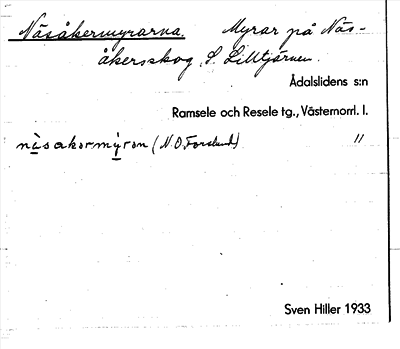 Näsåkermyrarna. Myrar på Näs-
åkersskog, S. Lilltjärnen.
Ådalslidens s:n
Ramsele och Resele tg., Västernorrl. l.
nä̀sakərmỳrɑn (N.O. Forslund) "
Sven Hiller 1933